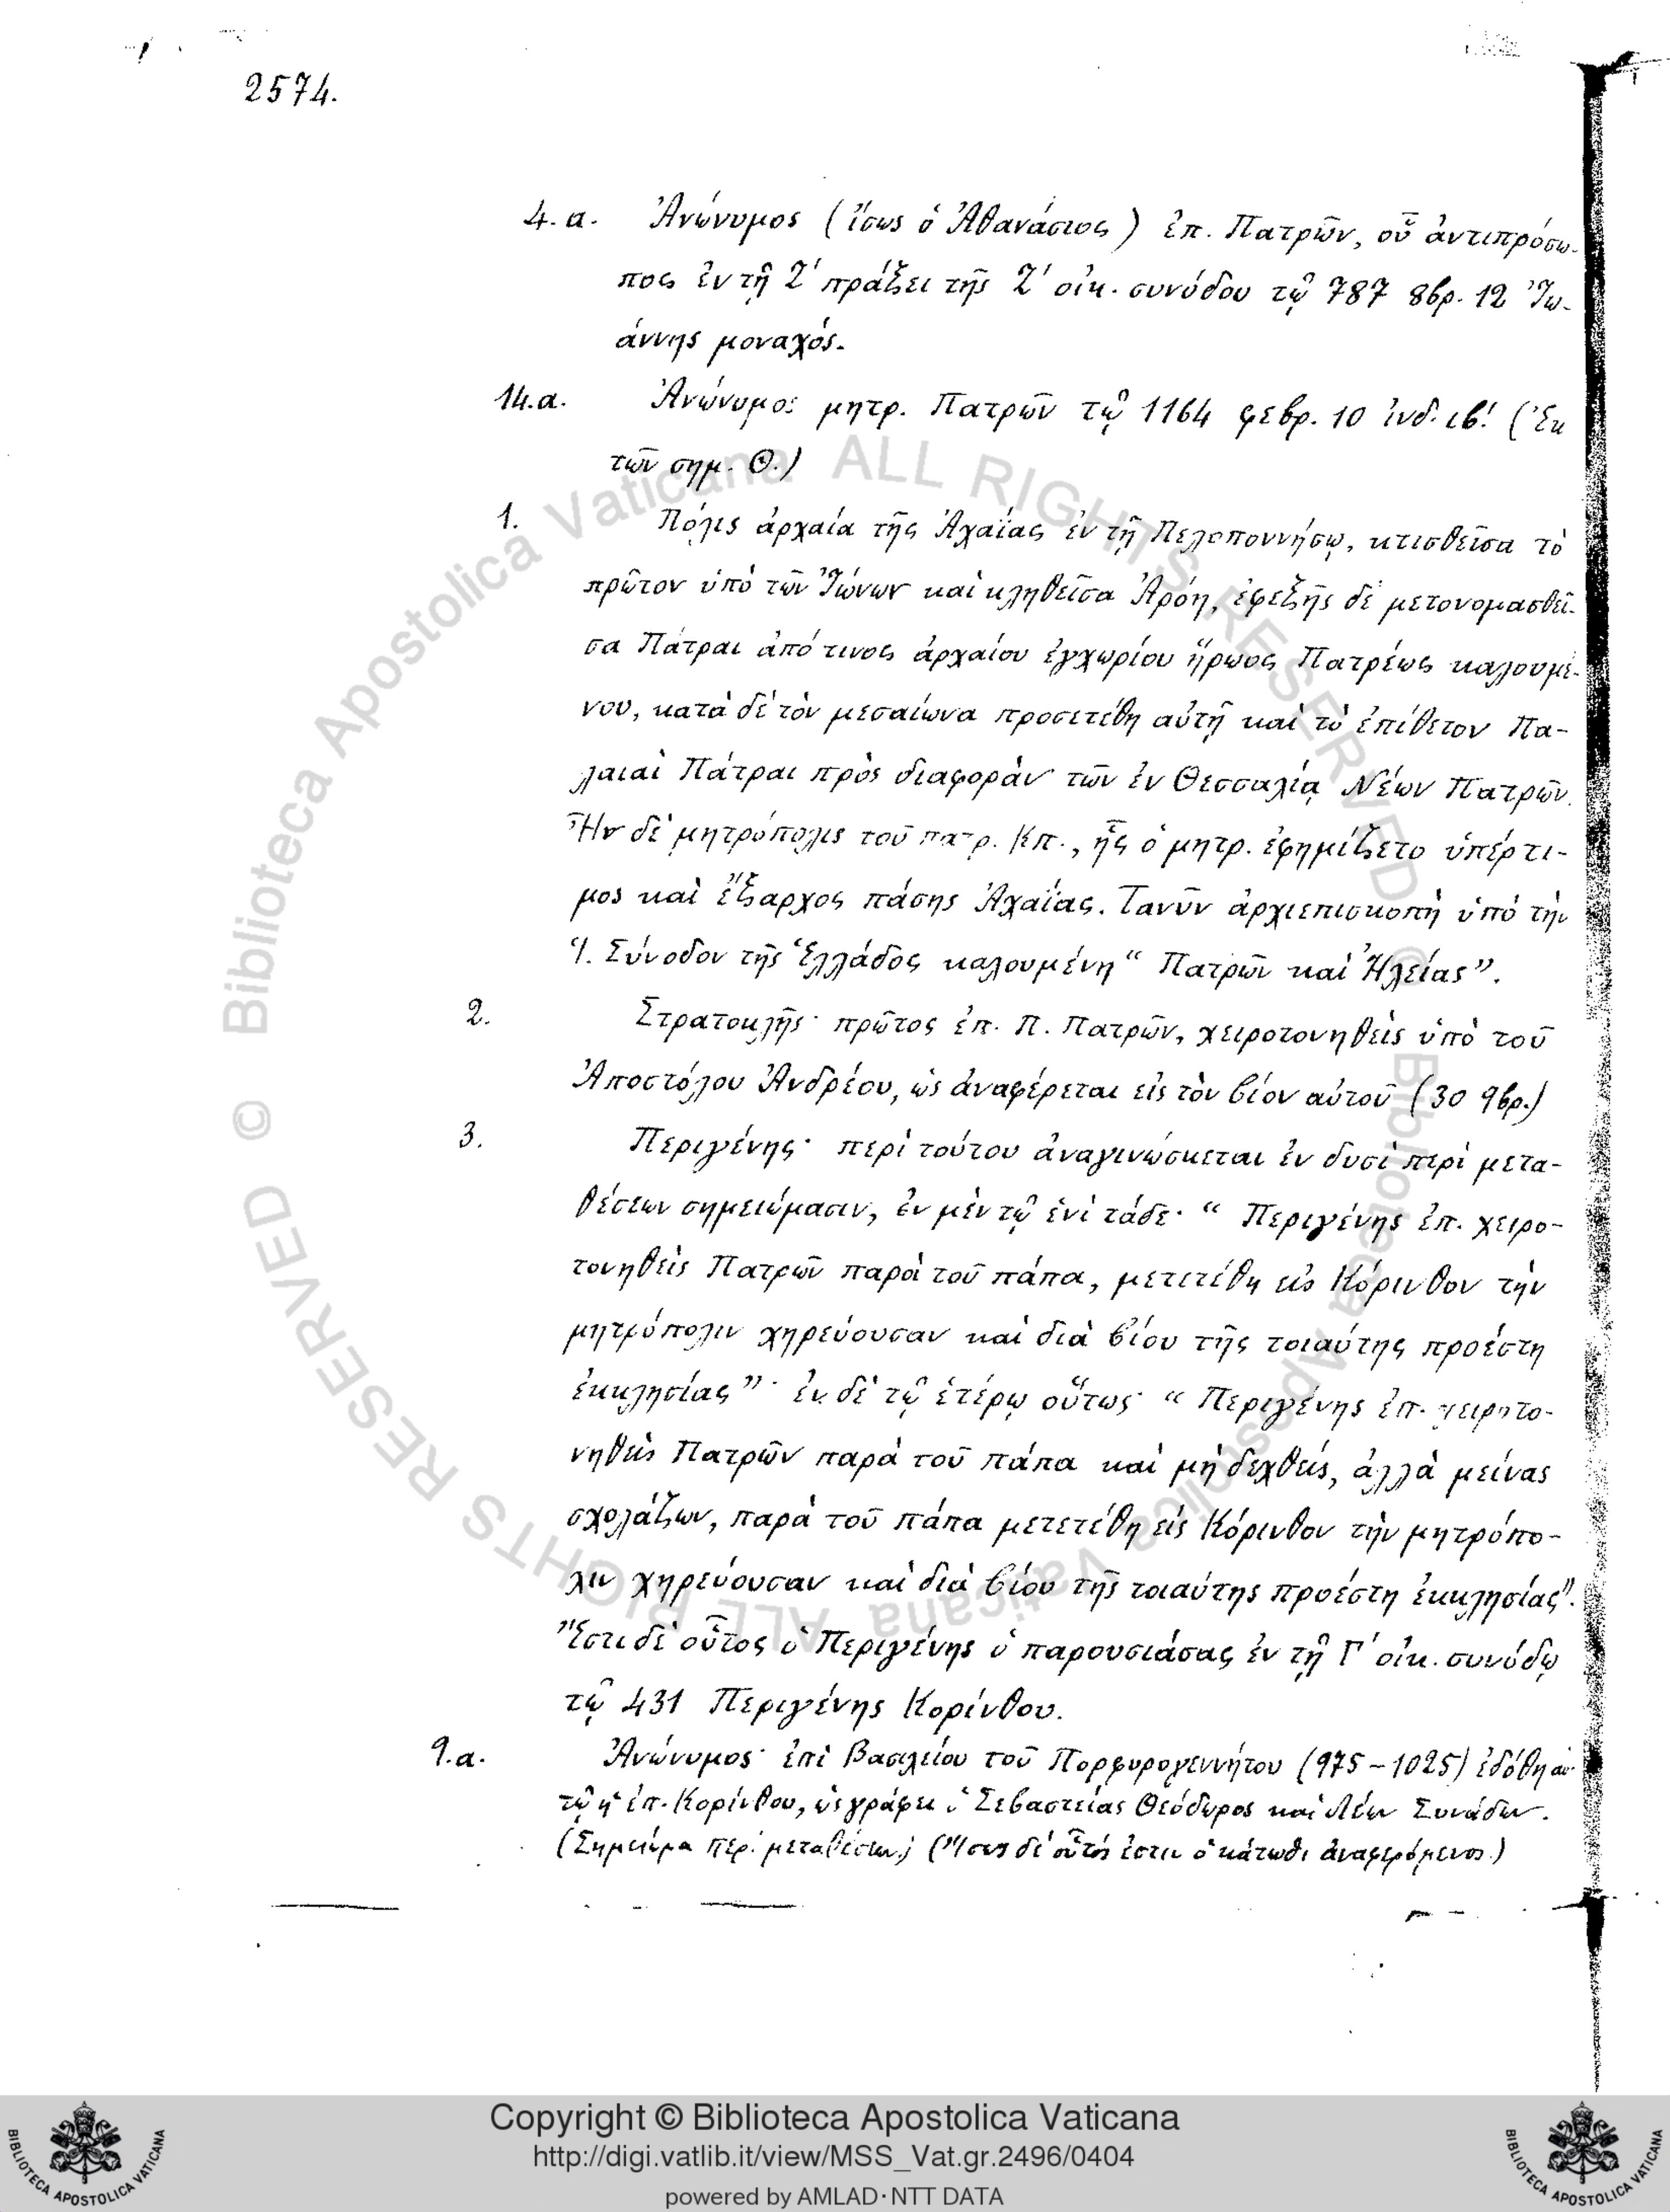 2574.
4.α. Ἀνώνυμος (ἴσως ὁ Ἀθανάσιος) ἐπ. Πατρῶν, οὗ ἀντιπρόσω-
πος ἐν τῇ Ζ′ πράξει τῆς Ζ′ οἰκ. συνόδου τῷ 787 8βρ. 12 Ἰω-
άννης μοναχός.
14.α. Ἀνώνυμος μητρ. Πατρῶν τῷ 1164 φεβρ. 10 ἰνδ. ιβ! (Ἐκ
τῶν σημ. Θ.)
1. Πόλις ἀρχαία τῆς Ἀχαΐας ἐν τῇ Πελοποννήσῳ, κτισθεῖσα τὸ
πρῶτον ὑπὸ τῶν Ἰώνων καὶ κληθεῖσα Ἀρόη, ἐφεξῆς δὲ μετονομασθεῖ-
σα Πάτραι ἀπό τινος ἀρχαίου ἐγχωρίου ἥρωος Πατρέως καλουμέ-
νου, κατὰ δὲ τὸν μεσαίωνα προσετέθη αὐτῇ καὶ τὸ ἐπίθετον Πα-
λαιαὶ Πάτραι πρὸς διαφορὰν τῶν ἐν Θεσσαλίᾳ Νέων Πατρῶν.
Ἦν δὲ μητρόπολις τοῦ πατρ. Κπ., ἧς ὁ μητρ. ἐφημίζετο ὑπέρτι-
μος καὶ ἔξαρχος πάσης Ἀχαΐας. Τανῦν ἀρχιεπισκοπὴ ὑπὸ τὴν
Ἱ. Σύνοδον τῆς Ἑλλάδος καλουμένη "Πατρῶν καὶ Ἠλείας".
2. Στρατοκλῆς· πρῶτος ἐπ. Π. Πατρῶν, χειροτονηθεὶς ὑπὸ τοῦ
Ἀποστόλου Ἀνδρέου, ὡς ἀναφέρεται εἰς τὸν βίον αὐτοῦ (30 9βρ.)
3. Περιγένης· περὶ τούτου ἀναγινώσκεται ἐν δυσὶ περὶ μετα-
θέσεων σημειώμασιν, ἐν μὲν τῷ ἑνὶ τάδε· "Περιγένης ἐπ. χειρο-
τονηθεὶς Πατρῶν παρὰ τοῦ πάπα, μετετέθη εἰς Κόρινθον τὴν
μητρόπολιν χηρεύουσαν καὶ διὰ βίου τῆς τοιαύτης προέστη
ἐκκλησίας"· ἐν δὲ τῷ ἑτέρῳ οὕτως· "Περιγένης ἐπ. χειροτο-
νηθεὶς Πατρῶν παρὰ τοῦ πάπα καὶ μὴ δεχθείς, ἀλλὰ μείνας
σχολάζων, παρὰ τοῦ πάπα μετετέθη εἰς Κόρινθον τὴν μητρόπο-
λιν χηρεύουσαν καὶ διὰ βίου τῆς τοιαύτης προέστη ἐκκλησίας".
Ἔστι δὲ οὗτος ὁ Περιγένης ὁ παρουσιάσας ἐν τῇ Γ′ οἰκ. συνόδῳ
τῷ 431 Περιγένης Κορίνθου.
9.α. Ἀνώνυμος· ἐπὶ Βασιλείου τοῦ Πορφυρογεννήτου (975-1025) ἐδόθη αὐ-
τῷ ἡ ἐπ. Κορίνθου, ὡς γράφει ὁ Σεβαστείας Θεόδωρος καὶ Λέων Συνάδων.
(Σημείωμα περὶ μεταθέσεων) (Ἴσως δὲ οὗτός ἐστιν ὁ κάτωθι ἀναφερόμενος.)
© Biblioteca Apostolica Vaticana ALL RIGHTS RESERVED © Biblioteca Apostolica Vaticana ALL RIGHTS RESERVED
Copyright © Biblioteca Apostolica Vaticana
http://digi.vatlib.it/view/MSS_Vat.gr.2496/0404
powered by AMLAD·NTT DATA
BIBLIOTECA APOSTOLICA VATICANA
BIBLIOTECA APOSTOLICA VATICANA